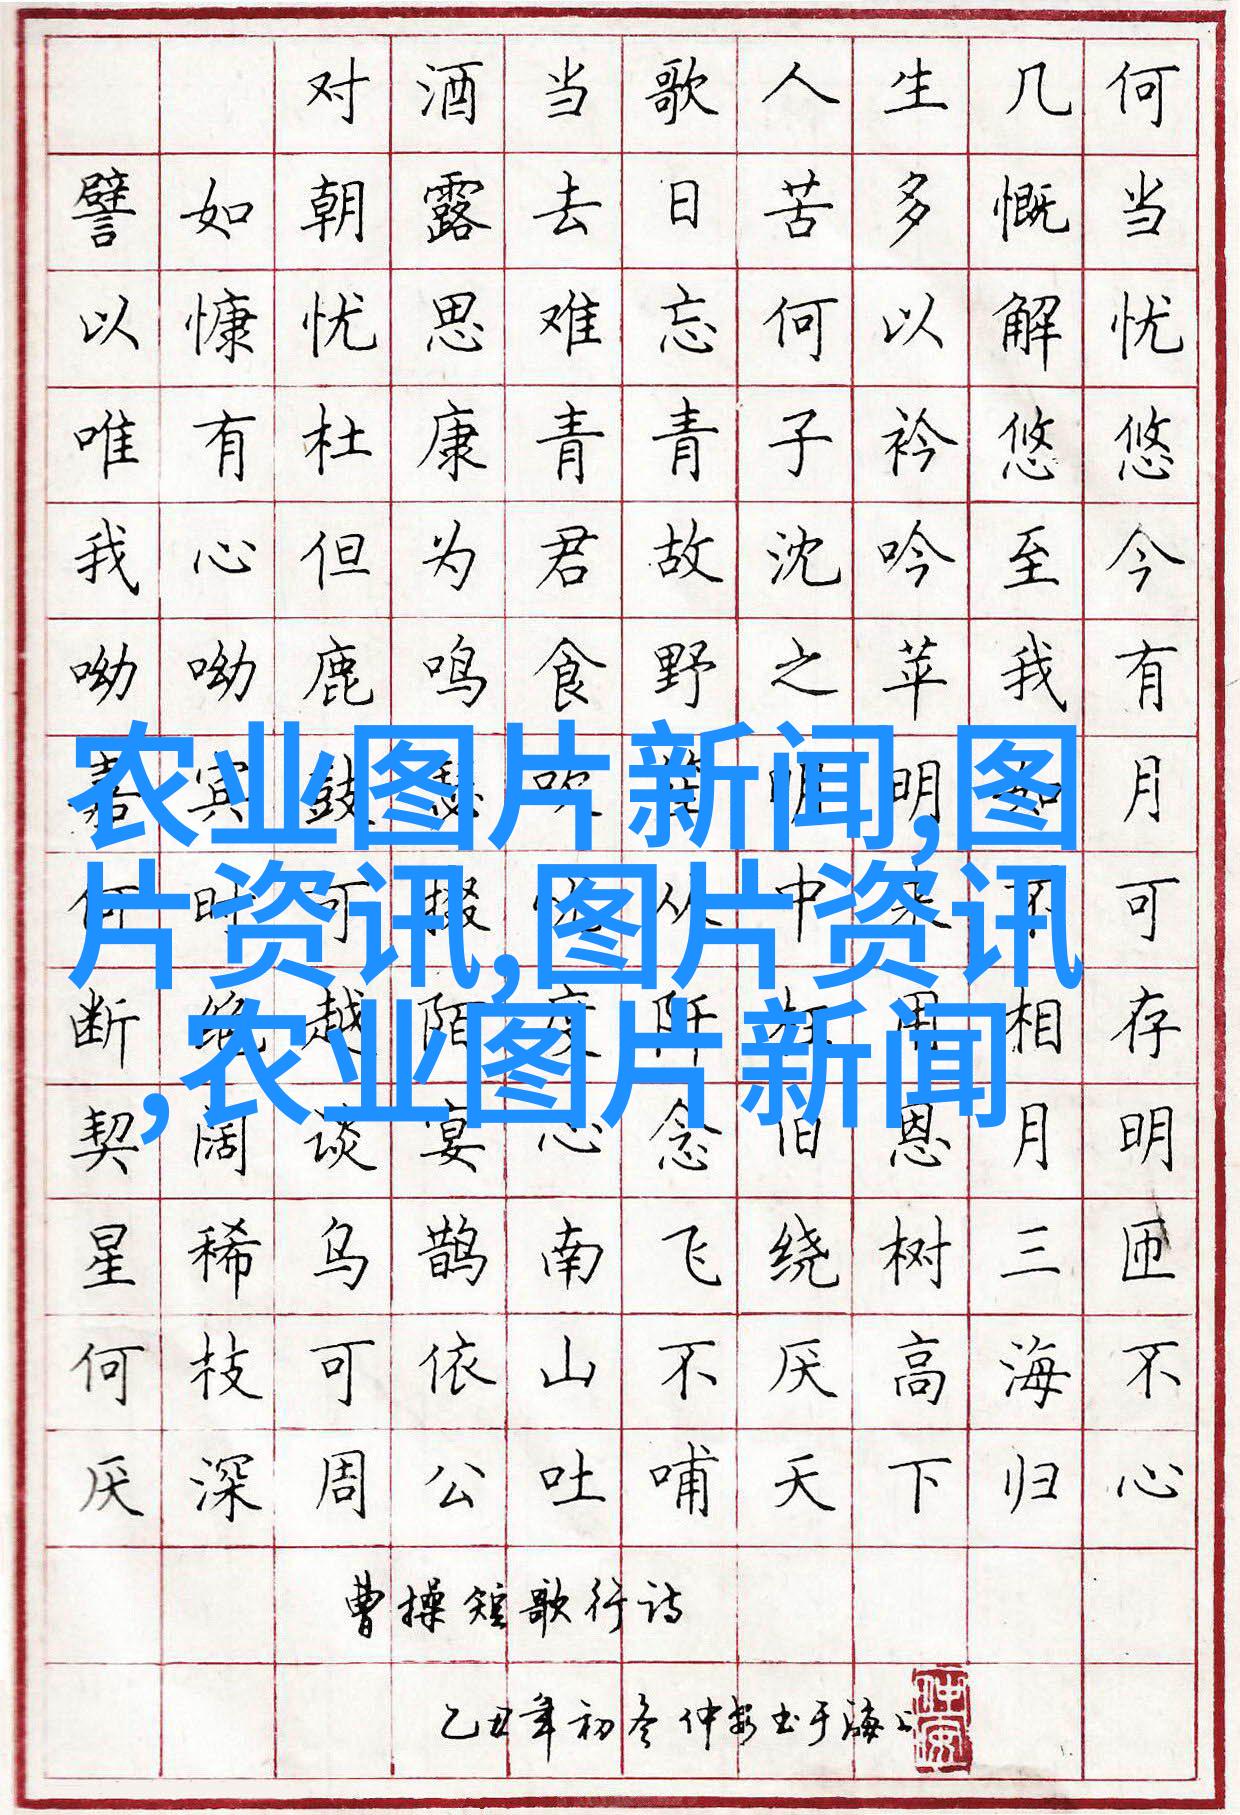 对酒当歌人生几何
譬如朝露去日苦多慨当
以慷忧思难忘何以解忧
唯有杜康青青子衿悠悠
我心但为君故沈吟至今
呦呦鹿鸣食野之苹我有
嘉宾鼓瑟吹明明如月
农业图片新闻,图
何时可掇忧从中来不可
片资讯,图片资讯
断绝越陌度阡相存
,农业图片新闻
契阔谈宴心念旧恩月明
星稀乌鹊南飞绕树三匝
何枝可依山不厌高海不
厌深周公吐哺天下归心
曹操短歌行诗
乙丑年初冬仲安书于海上
仲安